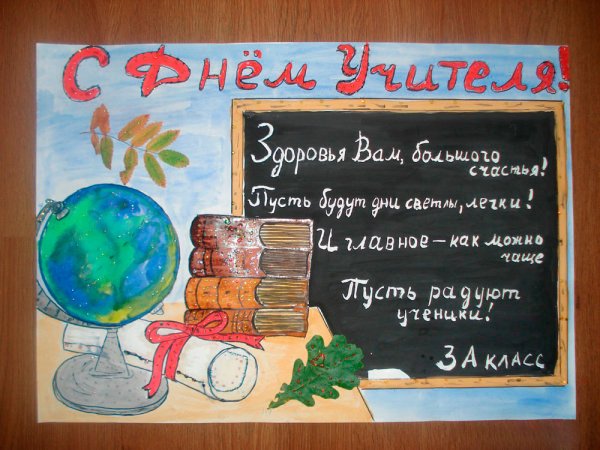 С Днём Учителя!
Здоровья Вам, большого
счастья!
Пусть будут дни светлы, легки!
И главное – как можно
чаще
Пусть радуют
ученики!
3 А класс